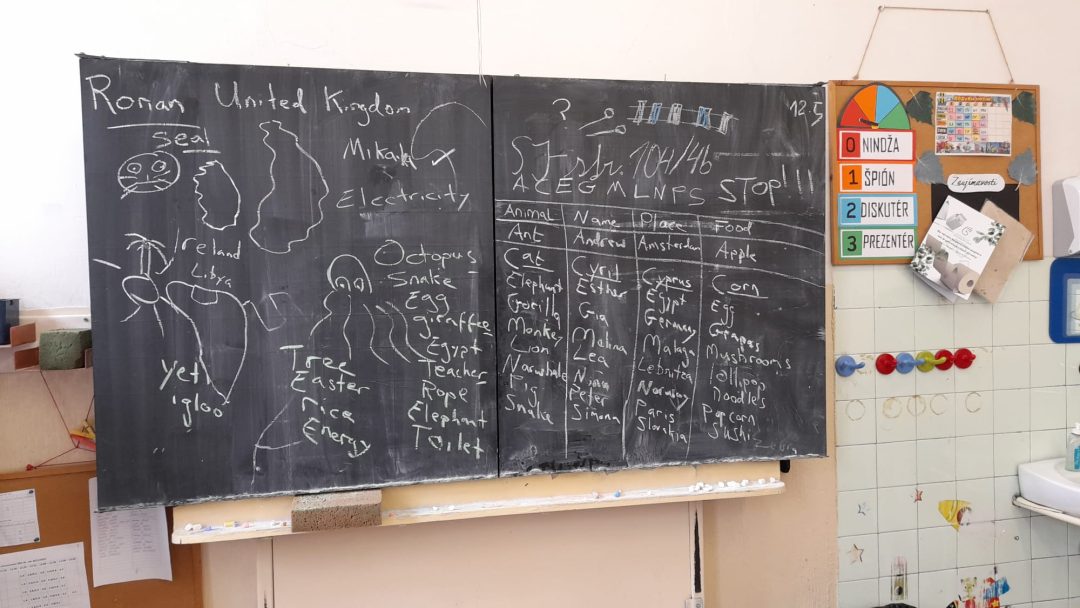 Ronan United Kingdom
Seal
Mikaka ✓
Electricity
Ireland
Libya
Yeti
igloo
Octopus
Snake
Egg
giraffee
Egypt
Teacher
Rope
Elephant
Toilet
Tree
Easter
rice
Energy
? 12.5
str. 104/4b
A C E G M L N P S STOP!!!
Animal Name Place Food
Ant Andrew Amsterdam Apple
Cat Cyril Cyprus Corn
Elephant Esther Egypt Egg
Gorilla Gia Germany Grapes
Monkey Malina Malaga Mushrooms
Lion Lea lollipop
Narwhale Norway Noodles
Pig Peter Paris Popcorn
Snake Simona Slovakia Sushi
0 NINDŽA
1 ŠPIÓN
2 DISKUTÉR
3 PREZENTÉR
Zaujímavosti